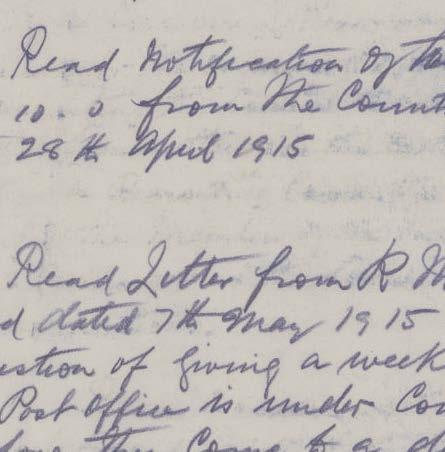 Read Notification of the
10.0 from the Count
28th April 1915
Read Letter from R M
d dated 7th May 1915
estion of giving a week
Post office is under Con
they Come to a d